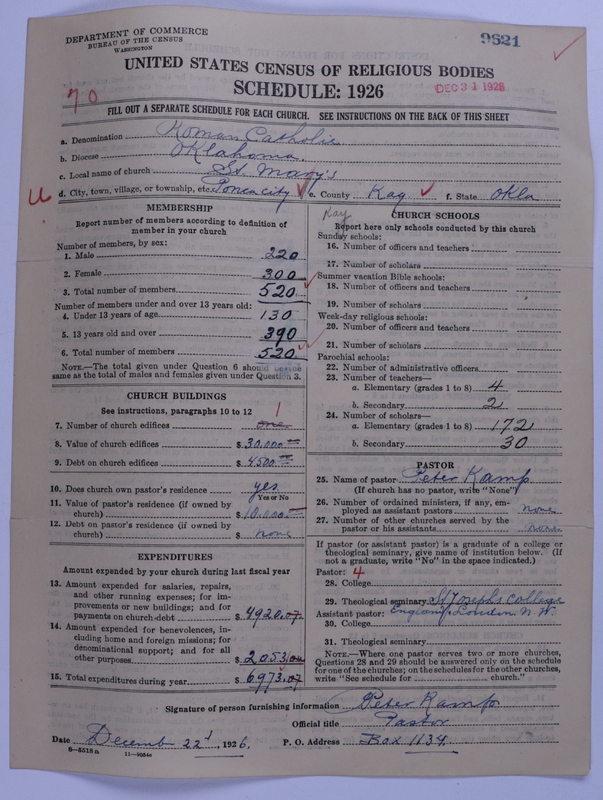 DEPARTMENT OF COMMERCE
BUREAU OF THE CENSUS
WASHINGTON
9621
UNITED STATES CENSUS OF RELIGIOUS BODIES
SCHEDULE: 1926
DEC 31 1926
70
FILL OUT A SEPARATE SCHEDULE FOR EACH CHURCH. SEE INSTRUCTIONS ON THE BACK OF THIS SHEET
a. Denomination Roman Catholic
b. Diocese Oklahoma.
c. Local name of church St. Mary's
d. City, town, village, or township, etc. Ponca city e. County Kay f. State Okla
U
MEMBERSHIP
Report number of members according to definition of
member in your church
Number of members, by sex:
1. Male 220
2. Female 300
3. Total number of members 520
Number of members under and over 13 years old:
4. Under 13 years of age 130
5. 13 years old and over 390
6. Total number of members 520
NOTE.—The total given under Question 6 should be the
same as the total of males and females given under Question 3.
CHURCH BUILDINGS
See instructions, paragraphs 10 to 12
1
7. Number of church edifices one
8. Value of church edifices $ 30,000
9. Debt on church edifices $ 4500
10. Does church own pastor's residence yes
Yes or No
11. Value of pastor's residence (if owned by
church) $ 10.000
12. Debt on pastor's residence (if owned by
church) $ none
EXPENDITURES
Amount expended by your church during last fiscal year
13. Amount expended for salaries, repairs,
and other running expenses; for im-
provements or new buildings; and for
payments on church debt $ 4920.07
14. Amount expended for benevolences, in-
cluding home and foreign missions; for
denominational support; and for all
other purposes $ 2053.00
15. Total expenditures during year $ 6973.07
Kay
CHURCH SCHOOLS
Report here only schools conducted by this church
Sunday schools:
16. Number of officers and teachers
17. Number of scholars
Summer vacation Bible schools:
18. Number of officers and teachers
19. Number of scholars
Week-day religious schools:
20. Number of officers and teachers
21. Number of scholars
Parochial schools:
22. Number of administrative officers
23. Number of teachers—
a. Elementary (grades 1 to 8) 4
b. Secondary 2
24. Number of scholars—
a. Elementary (grades 1 to 8) 172
b. Secondary 30
PASTOR
25. Name of pastor Peter Kamp
(If church has no pastor, write "None")
26. Number of ordained ministers, if any, em-
ployed as assistant pastors none
27. Number of other churches served by the
pastor or his assistants none
If pastor (or assistant pastor) is a graduate of a college or
theological seminary, give name of institution below. (If
not a graduate, write "No" in the space indicated.)
Pastor: 4
28. College
29. Theological seminary St Josephs College
Assistant pastor: London. N. W.
30. College
31. Theological seminary
NOTE.—Where one pastor serves two or more churches,
Questions 28 and 29 should be answered only on the schedule
for one of the churches; on the schedules for the other churches,
write "See schedule for church."
Signature of person furnishing information Peter Kamp
Official title Pastor
Date December 22d, 1926. P. O. Address Box 1134.
8—5518a 11—9054